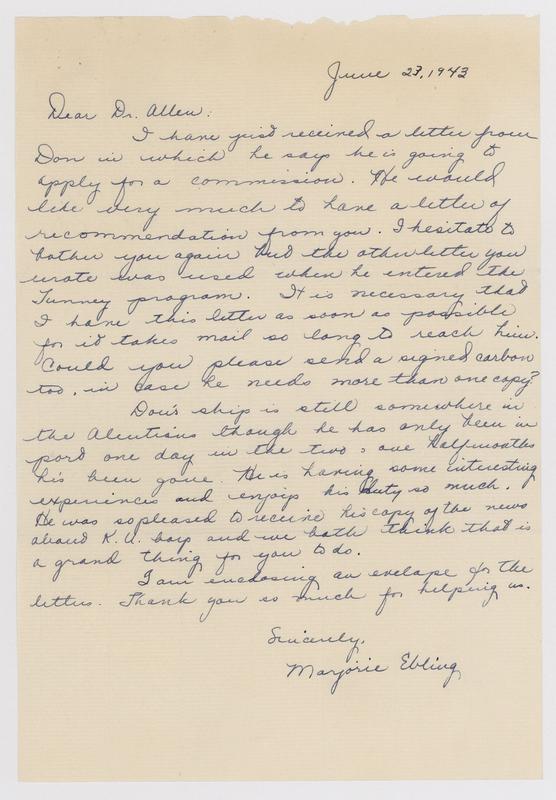 June 23, 1943
Dear Dr. Allen:
I have just received a letter from
Don in which he says he is going to
apply for a commission. He would
like very much to have a letter of
recommendation from you. I hesitate to
bother you again but the other letter you
wrote was used when he entered the
Tunney program. It is necessary that
I have this letter as soon as possible
for it takes mail so long to reach him.
Could you please send a signed carbon
too, in case he needs more than one copy?
Don's ship is still somewhere in
the Aleutians though he has only been in
port one day in the two & one half months
he's been gone. He is having some interesting
experiences and enjoys his duty so much.
He was so pleased to receive his copy of the news
about K.U. boys and we both think that is
a grand thing for you to do.
I am enclosing an evelape for the
letters. Thank you so much for helping us.
Sincerely,
Marjorie Ebling